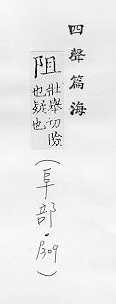 四聲篇海
阻
壯舉切險
也疑也
(阜部·P309)